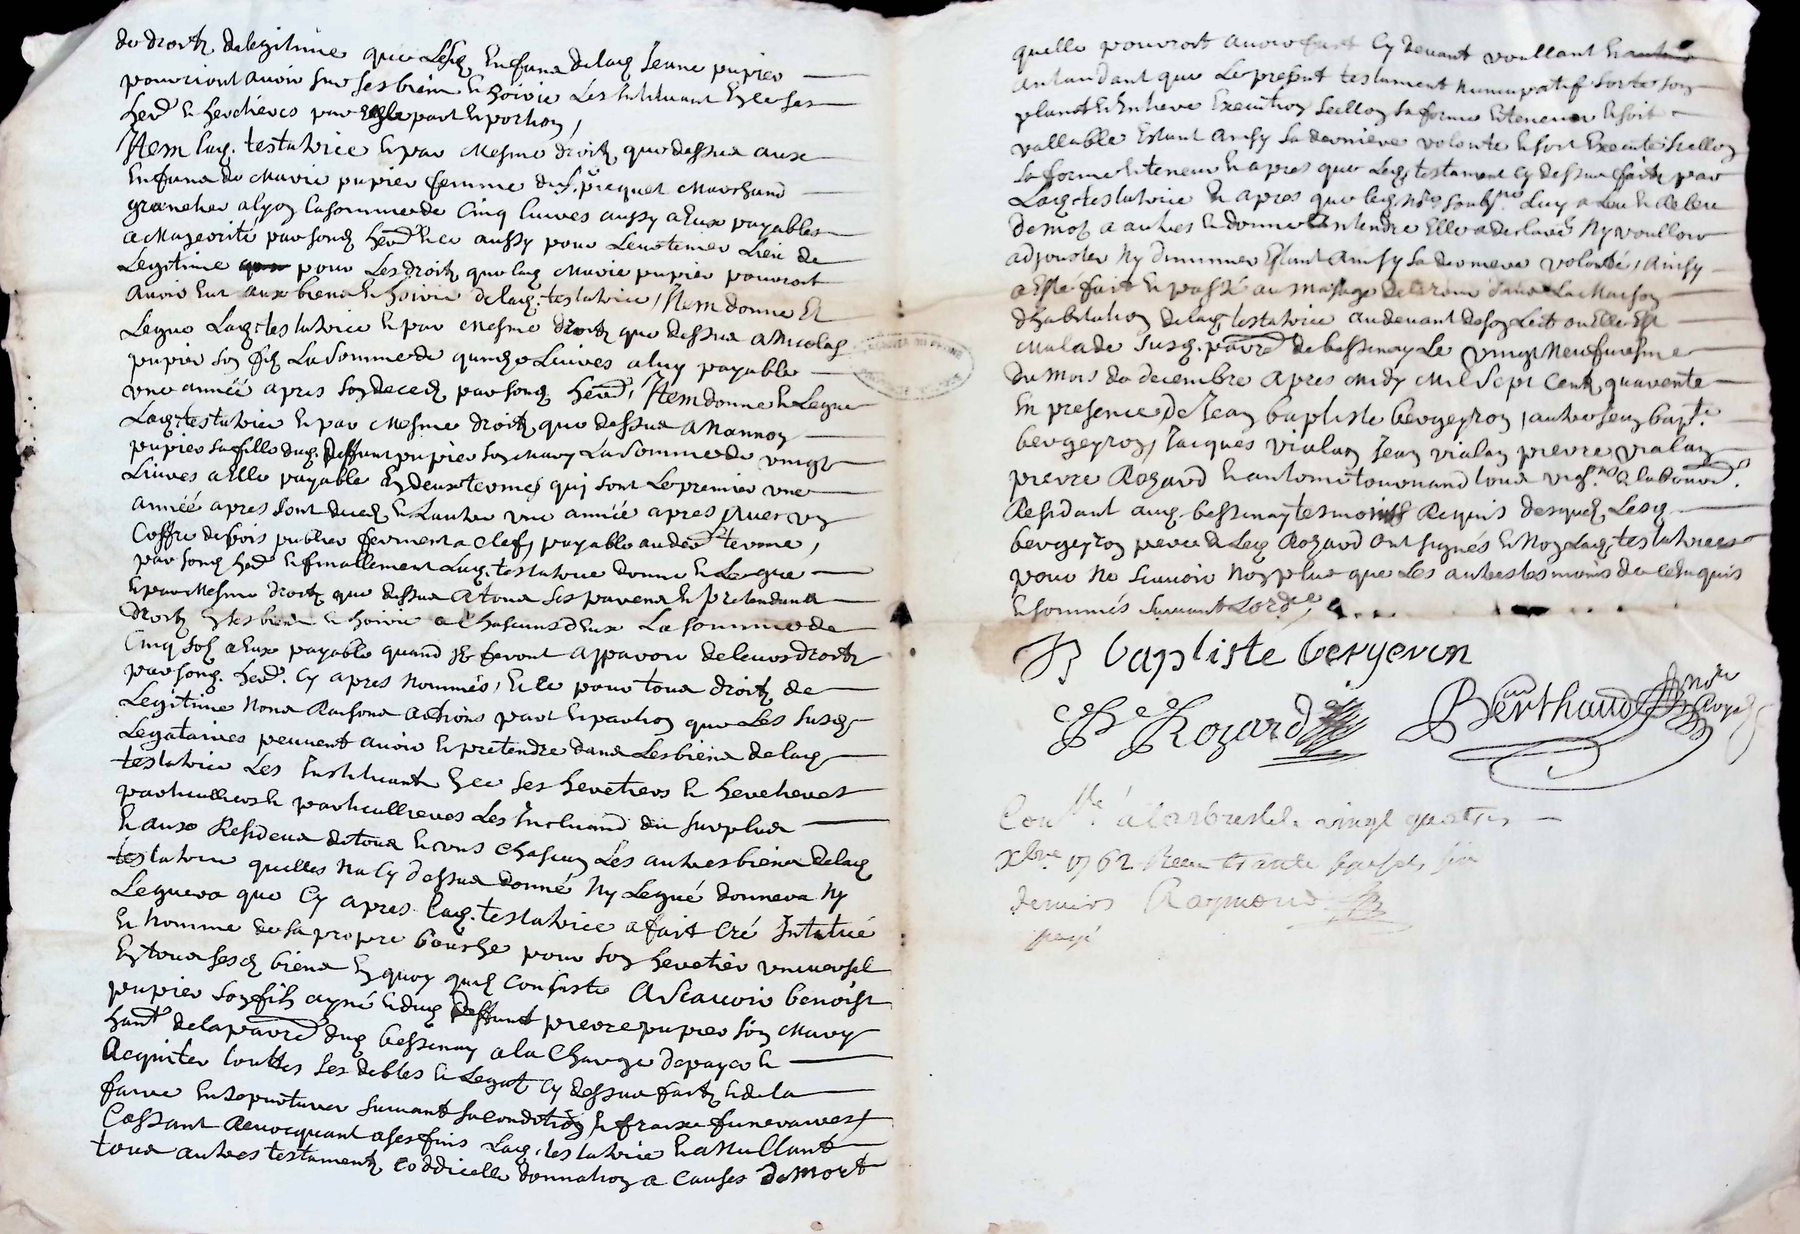 de droitz de legitime que lesd enfans de lad Jeane pupier
pourriont avoir sur ses biens et hoirie les instituant en ce ses
herd. et heritieres par egle part et portion,
Item lad. testatrice et par mesme droitz que dessus aux
enfans de Marie pupier femme de Sr. priquet Marchand
grenetier a lyon la somme de cinq livres aussy a eux payables
a Majorité par sond herd. et ce aussy pour leur tenir lieu de
legitime pour les droitz que lad Marie pupier pouvoit
avoir sur aux biens et hoirie de lad. testatrice, Item donne et
legue lad. testatrice et par mesme droitz que dessus a Nicolas
pupier son filz la somme de quinze livres a luy payable
une année apres son deced par sond herd., Item donne et legue
lad. testatrice et par mesme droitz que dessus a Nannon
pupier sa fille dud. deffunt pupier son mary la somme de vingt
livres a elle payable en deux termes qui sont le premier une
année apres sont deced et l'autre une année apres avec un
coffre de bois publier ferment a clef, payable au der. terme,
par sond herd. et finallement lad. testatrice donne et legue
et par mesme droitz que dessus a tous ses parens et pretendans
droitz en ses biens et hoirie a chascuns d'eux la somme de
cinq solz a eux payable quand ils feront aparoir de leurs droitz
par sond. herd. cy apres nommés, et ce pour tous droitz de
legitime noms raisons actions part et portion que les susd
legataires peuvent avoir et pretendre dans les biens de lad
testatrice les instituant en ce ses heretiers et heretieres
particulliers et particullieres les excluand du surplus
et aux residus de tous et uns chascun les autres biens de lad
testatrice quelles na cy dessus donné ny legué donnera ny
leguera que cy apres lad. testatrice a fait cré intitué
et nomme de sa propre bouche pour son heretier universel
en tous sesd biens en quoy quilz consiste a scavoir benoist
pupier son fils ayné et dud deffunt pierre pupier son mary
hant. de la parre. dud bessenay a la charge de payer et
acquiter touttes ses debtes et legat cy dessus faitz et de la
faire ensepulturer suivant sa condition et fraix funeraires,
cassant revocquant a ses fins lad. testatrice et anullant
tous autres testamentz coddicille donnation a causes de mort
quelle pouvroit avoir fait cy devant voullant et
antandant que le present testament nuncupatif sorte son
plant et entiere execution seillon sa forme et teneur et soit
vallable estant ainsy sa derniere volonte et soit executé seillon
sa forme et teneur et apres que led. testament cy dessus faitz par
lad. testatrice et apres que led. nre soubsne. luy a leu et releu
de mot a autres et donne a entendre elle a declaré ny voulloir
adjouster ny diminuer estant ainsy sa derniere volonté, ainsy
a esté fait et passé au masage de terone dans la maison
d'habitation de lad. testatrice au devant de son lict ou elle est
malade susd. parre. de bessenay le vingt neufviesme
du mois de decembre apres midy mil sept centz quarente
en presence de Jean baptiste bergeyron, autre Jean bapt.e
bergeyron, Jacques vialan Jean vialan pierre vialan
pierre Rozard et antoine tournand tous vign.ns et laboureurs.
Residant aud. bessenay tesmoins requis desquelz lesd
bergeyron pierre et led Rozard ont signés et non lad. testatrice
pour ne scavoir non plus que les autres tesmoins de ce enquis
et sommés suivant l'ord.e,
JB baptiste bergeron
Rozard
Berthaud nore Royal
Conllé. a larbresle vingt quatre
Xbre 1762 Receu trante
deniers Raymond
payé